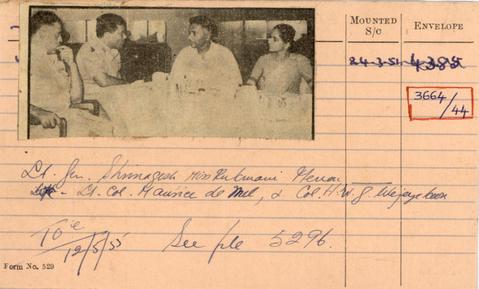 MOUNTED
S/C
ENVELOPE
24-3-51
4385
3664/44
Lt. Gen. Shrinagesh Miss Rukmani Menon
Lt. Col. Maurice de Mel, & Col. H.W.G. Wijeyekoon
TOI
12/5/55
See file 5296.
Form No. 529